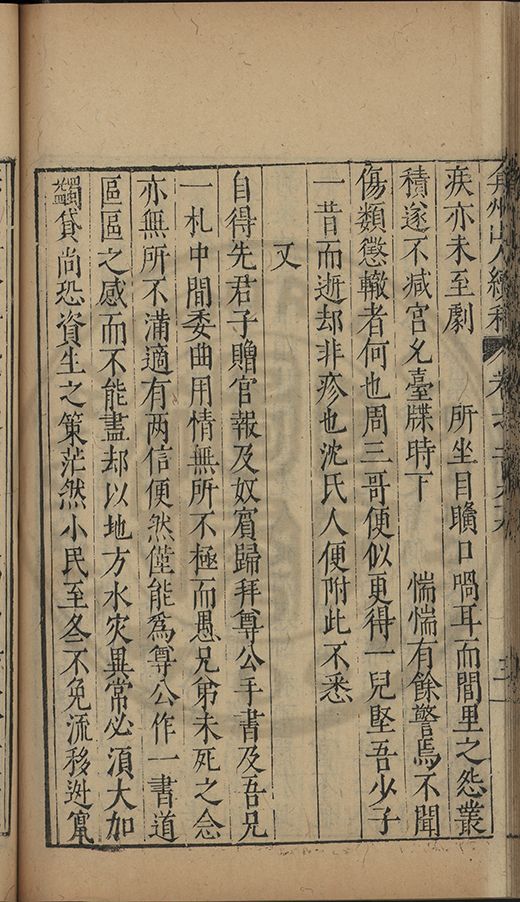 弇州山人續稿 卷之一百九
疾亦未至劇 所坐目贍口喎耳而閭里之怨叢
積遂不减宫幺臺牒時下 惴惴有餘警焉不聞
傷類懲轍者何也周三哥便似更得一兒堅吾少子
一昔而逝却非疹也沈氏人便附此不悉
又
自得先君子贈官報及奴賓歸拜尊公手書及吾兄
一札中間委曲用情無所不極而愚兄弟未死之念
亦無所不滿適有两信便然僅能為尊公作一書道
區區之感而不能盡却以地方水灾異常必湏大加
蠲貸尚恐資生之策茫然小民至冬不免流移迯竄